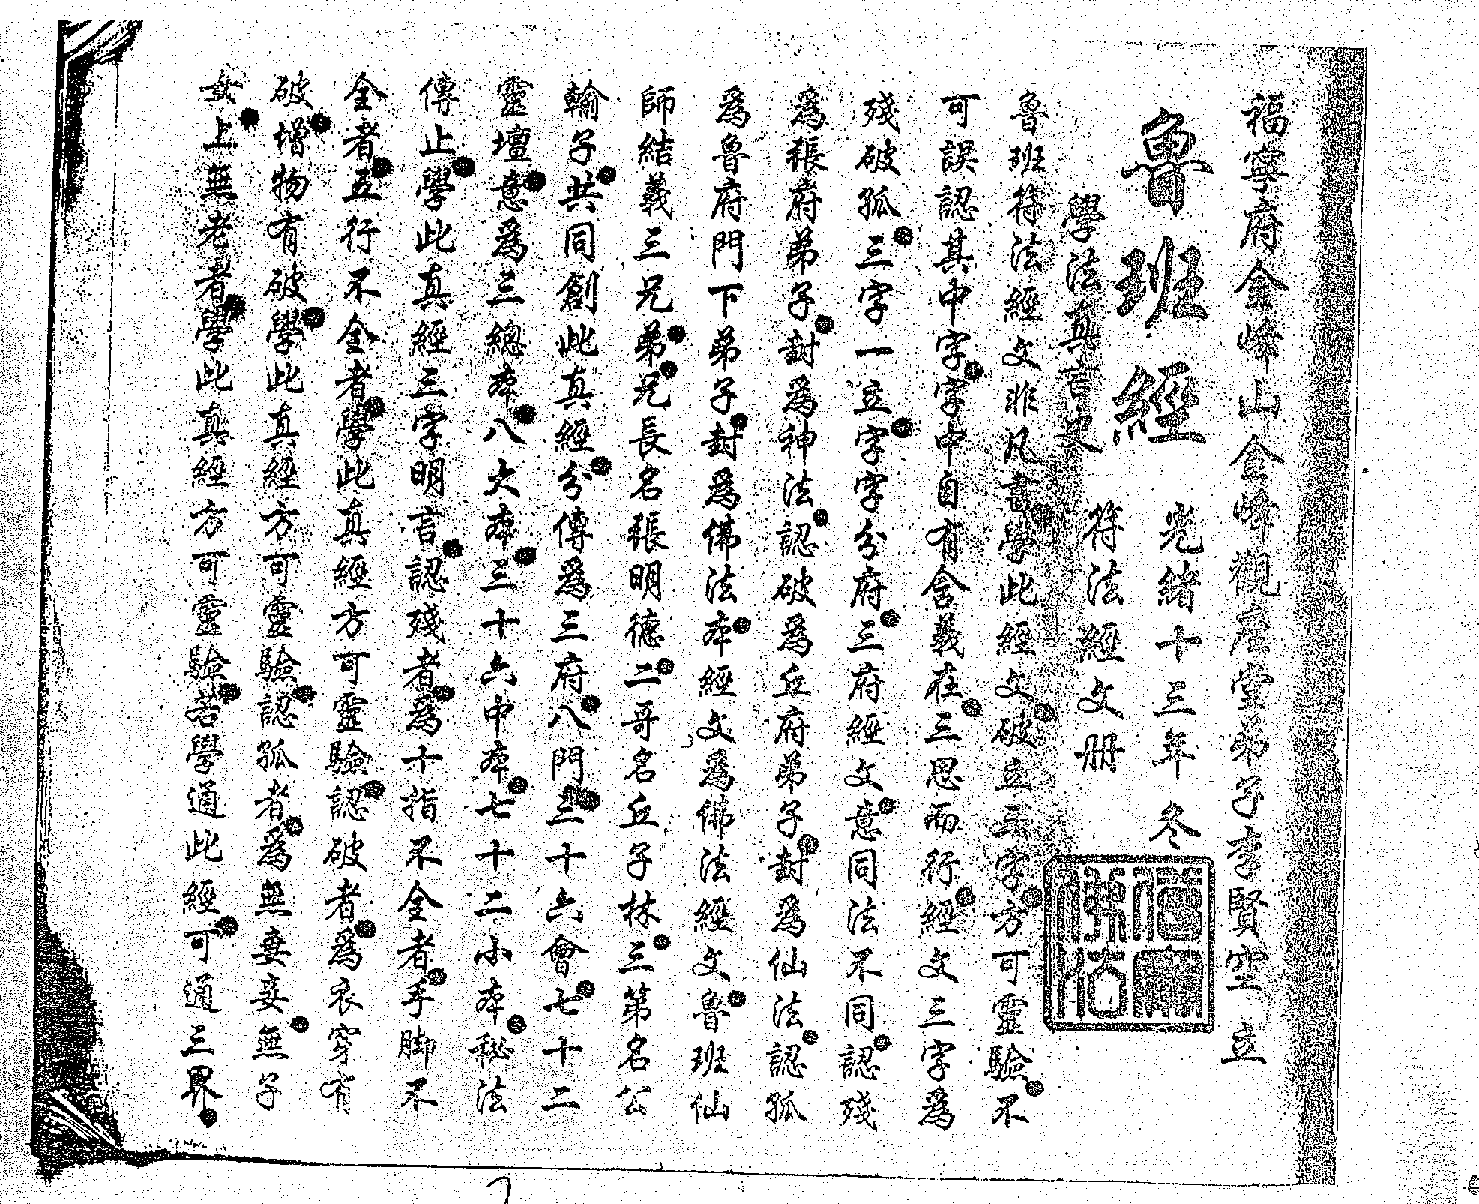 福寧府金峰山金峰觀應堂弟子李賢空立
光緒十三年冬
魯班經
符法經文冊
學法真言史
魯班符法經文非凡書學此經文破立三字方可靈驗不
可誤認其中字字中自有含義在三思而行經文三字為
殘破孤三字一立字字分府三府經文意同法不同認殘
為張府弟子封為神法認破為丘府弟子封為仙法認孤
為魯府門下弟子封為佛法本經文為佛法經文魯班仙
師結義三兄弟兄長名張明德二哥名丘子林三第名公
輸子共同創此真經分傳為三府八門三十六會七十二
靈壇意為三總本八大本三十六中本七十二小本秘法
傳止學此真經三字明言認殘者為十指不全者手脚不
全者五行不全者學此真經方可靈驗認破者為衣穿有
破增物有破學此真經方可靈驗認孤者為無妻妾無子
女上無老者學此真經方可靈驗若學通此經可通三界